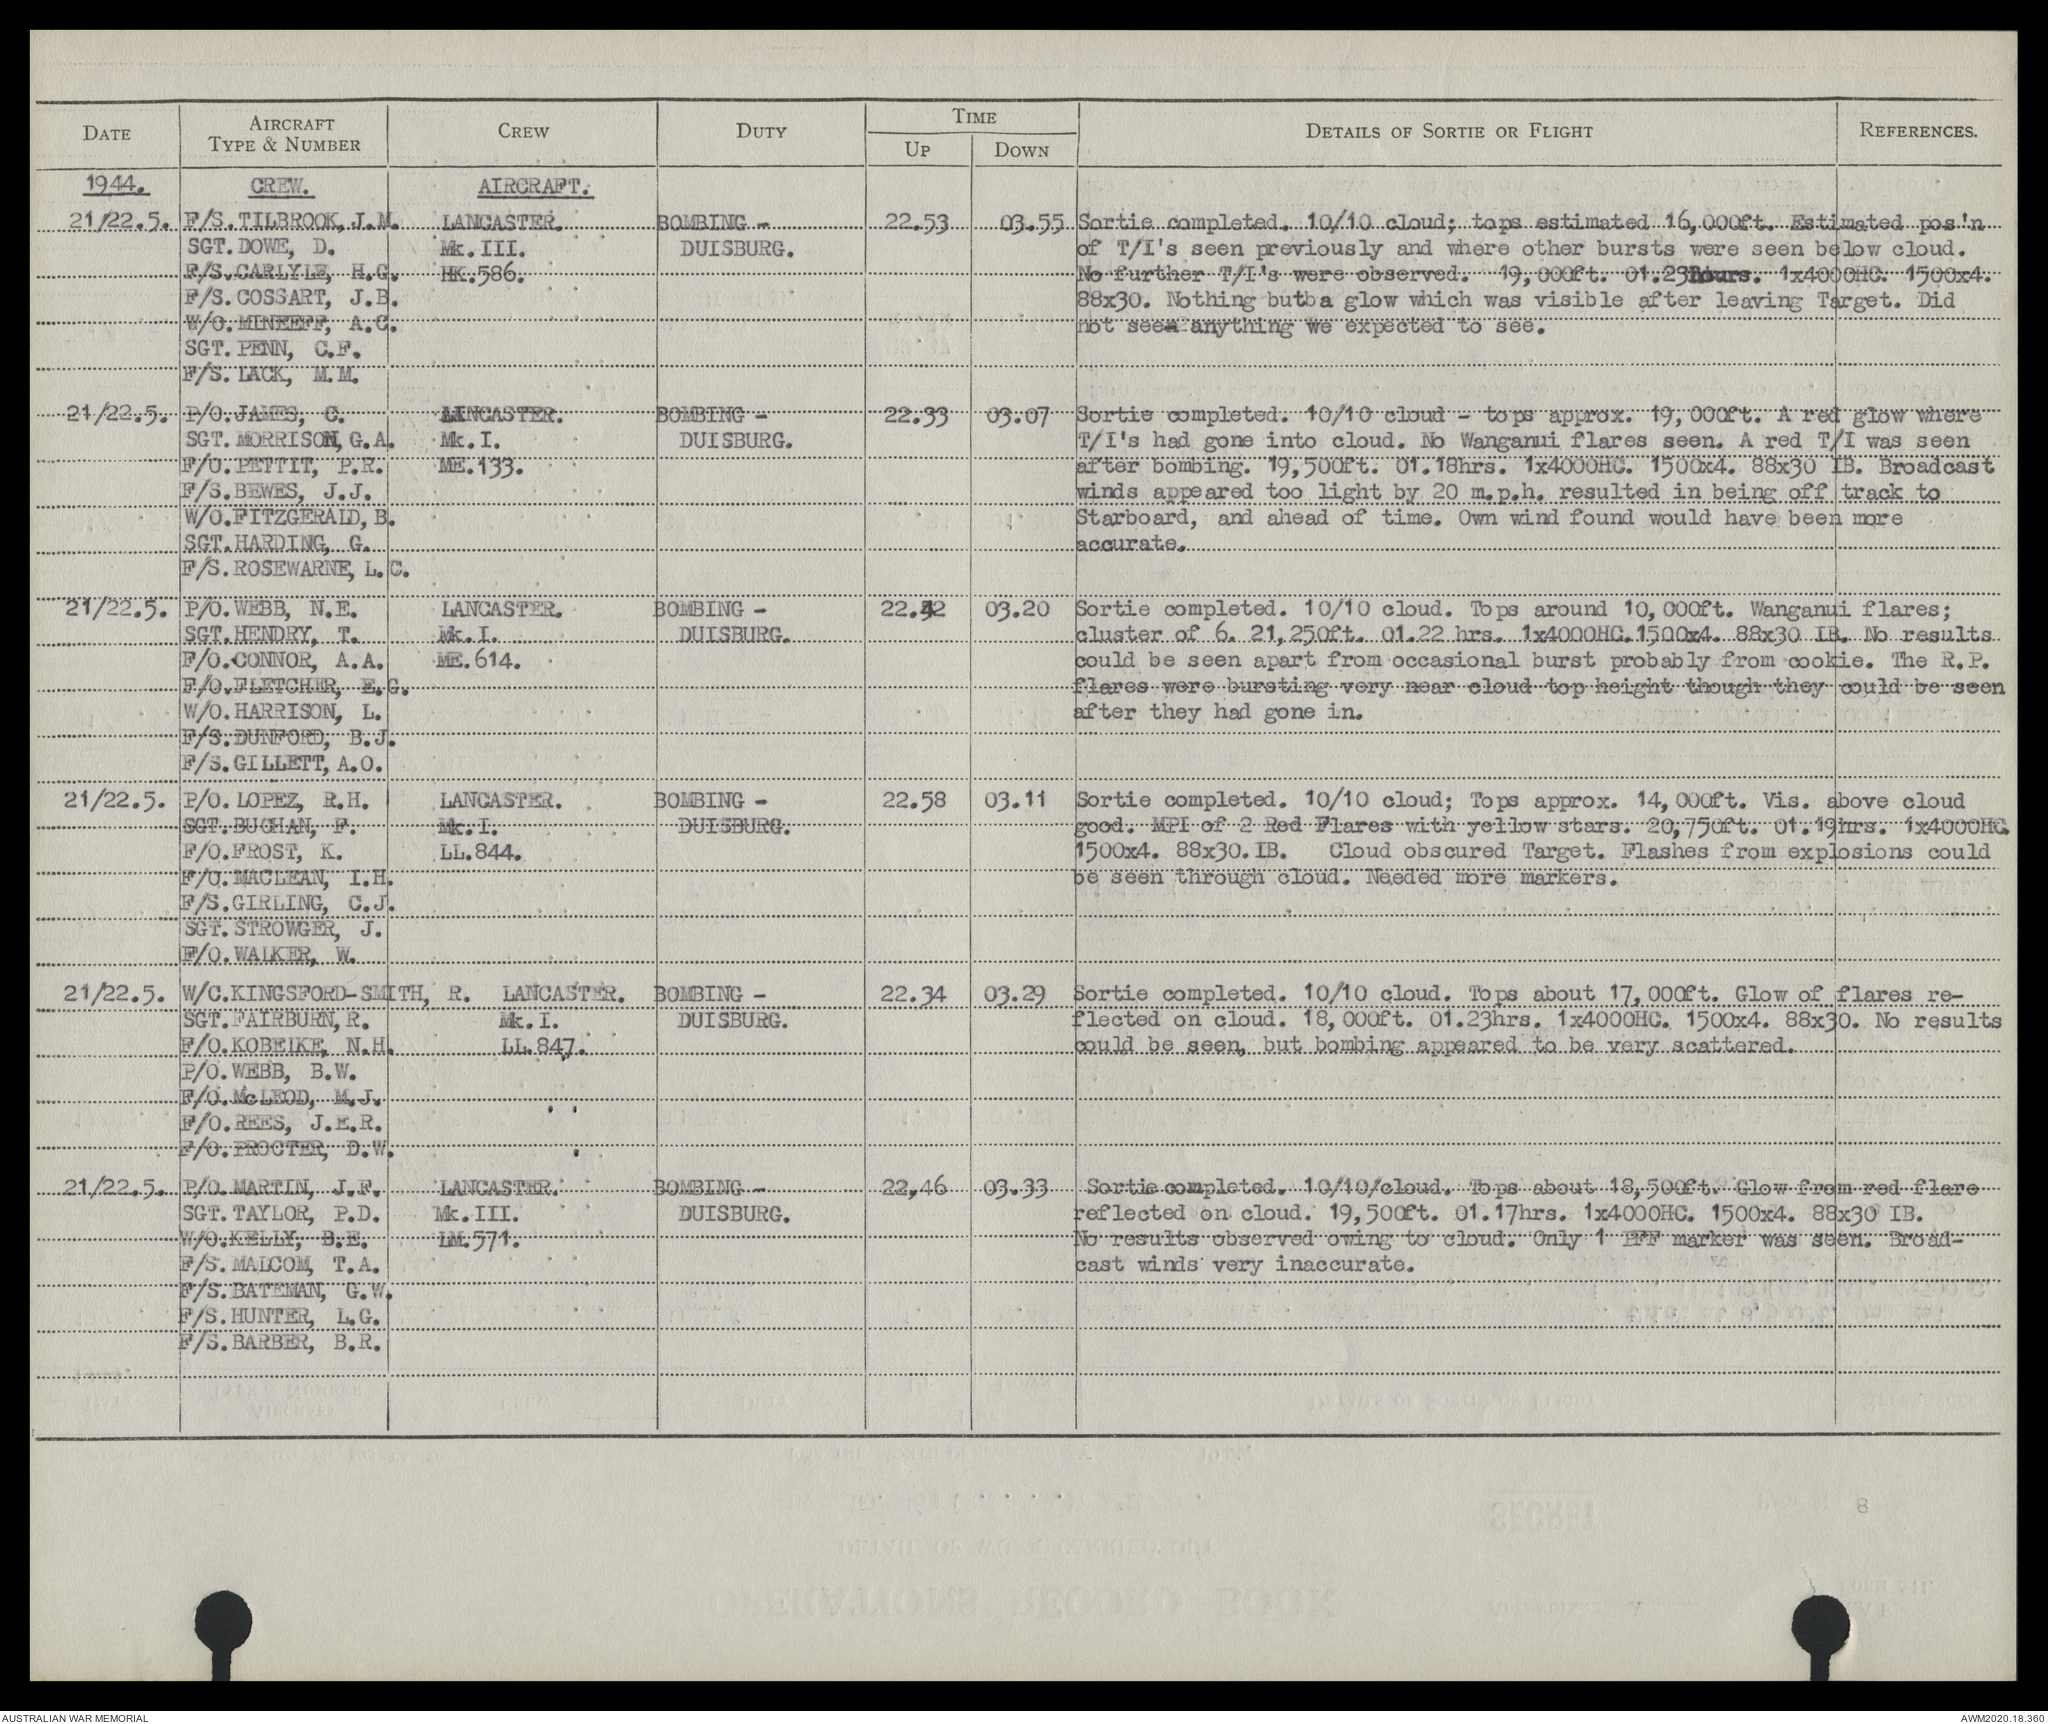 DATE AIRCRAFT TYPE & NUMBER CREW DUTY TIME UP DOWN DETAILS OF SORTIE OR FLIGHT REFERENCES.
1944. CREW. AIRCRAFT.
21/22.5. F/S. TILBROOK, J.M. LANCASTER. BOMBING - 22.53 03.55 Sortie completed. 10/10 cloud; tops estimated 16,000ft. Estimated pos'n
SGT. DOWE, D. Mk. III. DUISBURG. of T/I's seen previously and where other bursts were seen below cloud.
F/S. CARLYLE, H.G. HK.586. No further T/I's were observed. 19,000ft. 01.23hours. 1x4000HC. 1500x4.
F/S. COSSART, J.B. 88x30. Nothing butba glow which was visible after leaving Target. Did
W/O. MINEEFF, A.C. not see anything we expected to see.
SGT. PENN, C.F.
F/S. LACK, M.M.
21/22.5. P/O. JAMES, C. LANCASTER. BOMBING - 22.33 03.07 Sortie completed. 10/10 cloud - tops approx. 19,000ft. A red glow where
SGT. MORRISON, G.A. Mk. I. DUISBURG. T/I's had gone into cloud. No Wanganui flares seen. A red T/I was seen
F/O. PETTIT, P.R. ME.133. after bombing. 19,500ft. 01.18hrs. 1x4000HC. 1500x4. 88x30 IB. Broadcast
F/S. BEWES, J.J. winds appeared too light by 20 m.p.h. resulted in being off track to
W/O. FITZGERALD, B. Starboard, and ahead of time. Own wind found would have been more
SGT. HARDING, G. accurate.
F/S. ROSEWARNE, L.C.
21/22.5. P/O. WEBB, N.E. LANCASTER. BOMBING - 22.42 03.20 Sortie completed. 10/10 cloud. Tops around 10,000ft. Wanganui flares;
SGT. HENDRY, T. Mk. I. DUISBURG. cluster of 6. 21,250ft. 01.22 hrs. 1x4000HC. 1500x4. 88x30 IB. No results
F/O. CONNOR, A.A. ME.614. could be seen apart from occasional burst probably from cookie. The R.P.
F/O. FLETCHER, E.G. flares were bursting very near cloud top height though they could be seen
W/O. HARRISON, L. after they had gone in.
F/S. DUNFORD, B.J.
F/S. GILLETT, A.O.
21/22.5. P/O. LOPEZ, R.H. LANCASTER. BOMBING - 22.58 03.11 Sortie completed. 10/10 cloud; Tops approx. 14,000ft. Vis. above cloud
SGT. BUCHAN, F. Mk. I. DUISBURG. good. MPI of 2 Red Flares with yellow stars. 20,750ft. 01.19hrs. 1x4000HC
F/O. FROST, K. LL.844. 1500x4. 88x30. IB. Cloud obscured Target. Flashes from explosions could
F/O. MACLEAN, I.H. be seen through cloud. Needed more markers.
F/S. GIRLING, C.J.
SGT. STROWGER, J.
F/O. WALKER, W.
21/22.5. W/C. KINGSFORD-SMITH, R. LANCASTER. BOMBING - 22.34 03.29 Sortie completed. 10/10 cloud. Tops about 17,000ft. Glow of flares re-
SGT. FAIRBURN, R. Mk. I. DUISBURG. flected on cloud. 18,000ft. 01.23hrs. 1x4000HC. 1500x4. 88x30. No results
F/O. KOBEIKE, N.H. LL.847. could be seen, but bombing appeared to be very scattered.
P/O. WEBB, B.W.
F/O. McLEOD, M.J.
F/O. REES, J.E.R.
F/O. PROCTER, D.W.
21/22.5. P/O. MARTIN, J.F. LANCASTER. BOMBING - 22,46 03.33 Sortie completed. 10/10/cloud. Tops about 18,500ft. Glow from red flare
SGT. TAYLOR, P.D. Mk. III. DUISBURG. reflected on cloud. 19,500ft. 01.17hrs. 1x4000HC. 1500x4. 88x30 IB.
W/O. KELLY, B.E. LM.571. No results observed owing to cloud. Only 1 PFF marker was seen. Broad-
F/S. MALCOM, T.A. cast winds very inaccurate.
F/S. BATEMAN, G.W.
F/S. HUNTER, L.G.
F/S. BARBER, B.R.
8
AUSTRALIAN WAR MEMORIAL AWM2020.18.360